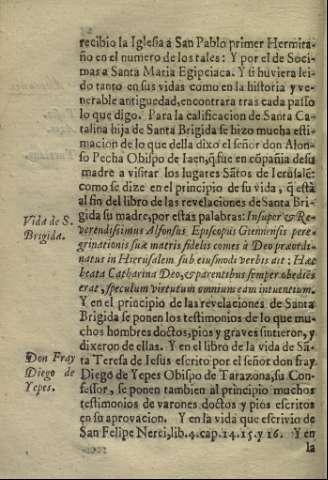 recibio la Iglesia à San Pablo primer Hermita-
ño en el numero de los tales: Y por el de Soci-
mas a Santa Maria Egipciaca. Y si huviera lei-
do tanto en sus vidas como en la historia y ve-
nerable antiguedad, encontrara tras cada passo
lo que digo. Para la calificacion de Santa Ca-
talina hija de Santa Brigida se hizo mucha esti-
macion de lo que della dixo el señor don Alon-
so Pecha Obispo de Iaen, q̃ fue en cõpañia de su
madre a visitar los lugares Sãtos de Ierusalẽ:
como se dize en el principio de su vida, q̃ està
al fin del libro de las revelaciones de Santa Bri-
gida su madre, por estas palabras: Insuper & Re-
Vida de S.
Brigida.
verendissimus Alfonsus Episcopus Giennensis pere-
grinationis suæ matris fidelis comes à Deo præord-
natus in Hierusalem sub eiusmodi verbis ait: Hæc
beata Catharina Deo, & parentibus semper obediẽs
erat, speculum virtutum omnium eam intuentium.
Y en el principio de las revelaciones de Santa
Brigida se ponen los testimonios de lo que mu-
chos hombres doctos, pios y graves sintieron, y
dixeron de ellas. Y en el libro de la vida de Sã-
ta Teresa de Iesus escrito por el señor don fray
Don Fray
Diego de
Yepes.
Diego de Yepes Obispo de Tarazona, su Con-
fessor, se ponen tambien al principio muchos
testimonios de varones doctos y pios escritos
en su aprovacion. Y en la vida que escrivio de
San Felipe Nerei, lib. 4. cap. 14. 15. y 16. Y en
la